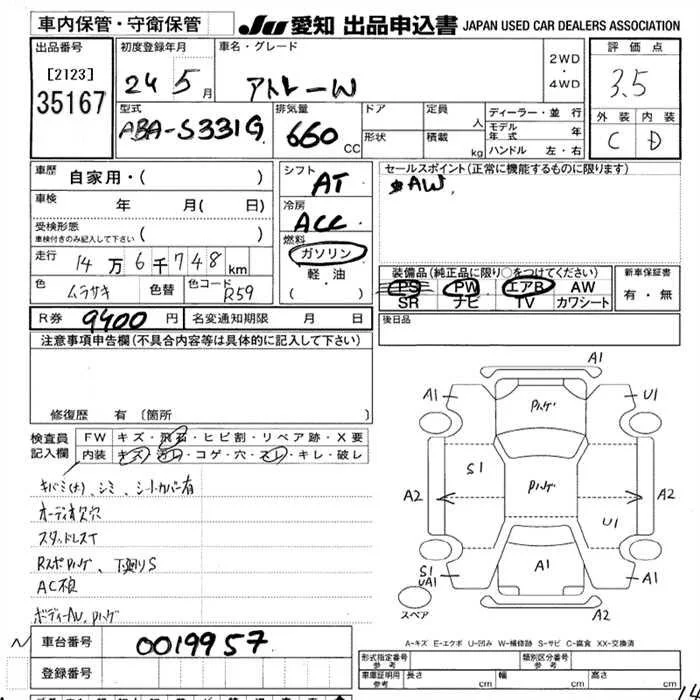 車内保管・守衛保管
JU 愛知 出品申込書 JAPAN USED CAR DEALERS ASSOCIATION
出品番号
[2123]
35167
初度登録年月
24 5 月
車名・グレード
アトレーW
2WD
・
4WD
評価点
3.5
外装 内装
C D
型式
ABA-S331G
排気量
660 CC
ドア
形状
定員 人
積載 kg
ディーラー・並行
モデル年式 年
ハンドル 左・右
車歴
自家用・( )
車検
年 月( 日)
受検形態
車検付きのみ記入して下さい ( )
走行
14万6千748km
色
ムラサキ 色替 色コード R59
シフト
AT
冷房
ACC
燃料
ガソリン
・
軽油
( )
セールスポイント(正常に機能するものに限ります)
AW,
装備品(純正品に限り○をつけてください)
PS PW エアB AW
SR ナビ TV カワシート
新車保証書
有・無
R券 9400 円 名変通知期限 月 日
後日品
注意事項申告欄(不具合内容等は具体的に記入して下さい)
修復歴 有〔箇所 〕
検査員記入欄
FW キズ・飛石・ヒビ割・リペア跡・X要
内装 キズ・汚レ・コゲ・穴・スレ・キレ・破レ
キバミ(大)、シミ、シートカバー有
オーディオ欠穴
スタッドレスT
RスポハゲS、下廻りS
AC不良
ボディーAU,ハゲ
A1
A1 ハゲ U1
S1 ハゲ
A2 A2
U1
S1
UA1 A1 A1
スペア A2
A-キズ E-エクボ U-凹み W-補修跡 S-サビ C-腐食 XX-交換済
車台番号 0019957
登録番号
形式指定番号 参考 類別区分番号 参考
車庫証明用 参考 長さ cm 幅 cm 高さ cm